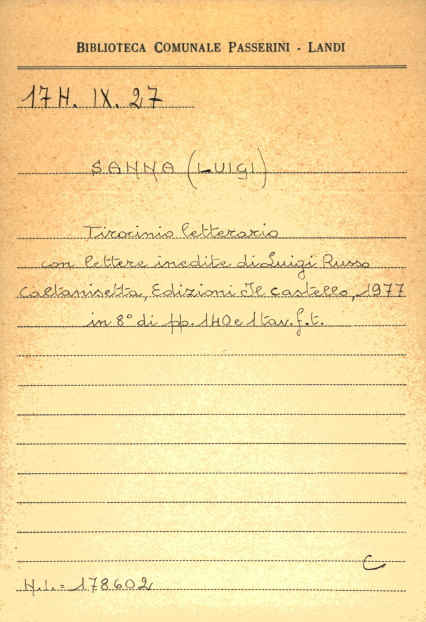 BIBLIOTECA COMUNALE PASSERINI - LANDI
17H. IX. 27
SANNA (LUIGI)
Tirocinio letterario
con lettere inedite di Luigi Russo
Caltanisetta, Edizioni Il Castello, 1977
in 8° di pp. 140 e 1 tav. f. t.
C
N.I. = 178602